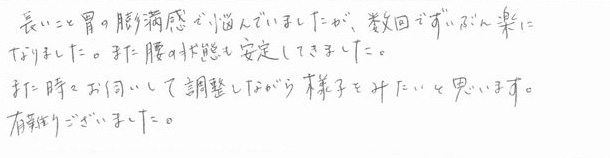 長いこと胃の膨満感で悩んでいましたが、数回でずいぶん楽に
なりました。また腰の状態も安定してきました。
また時々お伺いして調整しながら様子をみたいと思います。
有難うございました。